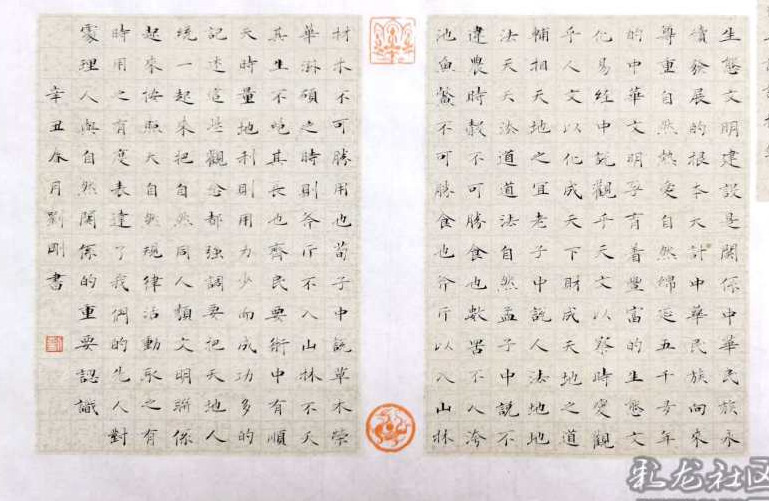 生態文明建設是關係中華民族永
續發展的根本大計中華民族向來
尊重自然熱愛自然綿延五千多年
的中華文明孕育着豐富的生態文
化易經中說觀乎天文以察時變觀
乎人文以化成天下財成天地之道
輔相天地之宜老子中說人法地地
法天天法道道法自然孟子中說不
違農時穀不可勝食也數罟不入洿
池魚鱉不可勝食也斧斤以入山林
材木不可勝用也荀子中說草木榮
華滋碩之時則斧斤不入山林不夭
其生不絕其長也齊民要術中有順
天時量地利則用力少而成功多的
記述這些觀念都強調要把天地人
統一起來把自然同人類文明聯係
起來按照大自然規律活動取之有
時用之有度表達了我們的先人對
處理人與自然關係的重要認識
辛丑春月劉剛書
彩龙社区